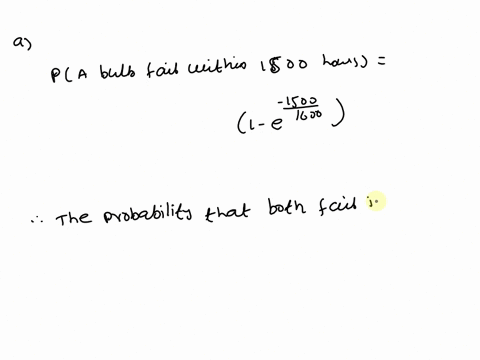 a)
P(A bulb fail within 1500 hours) =
(1 - e^(-1500/1600))
∴ The probability that both fail is